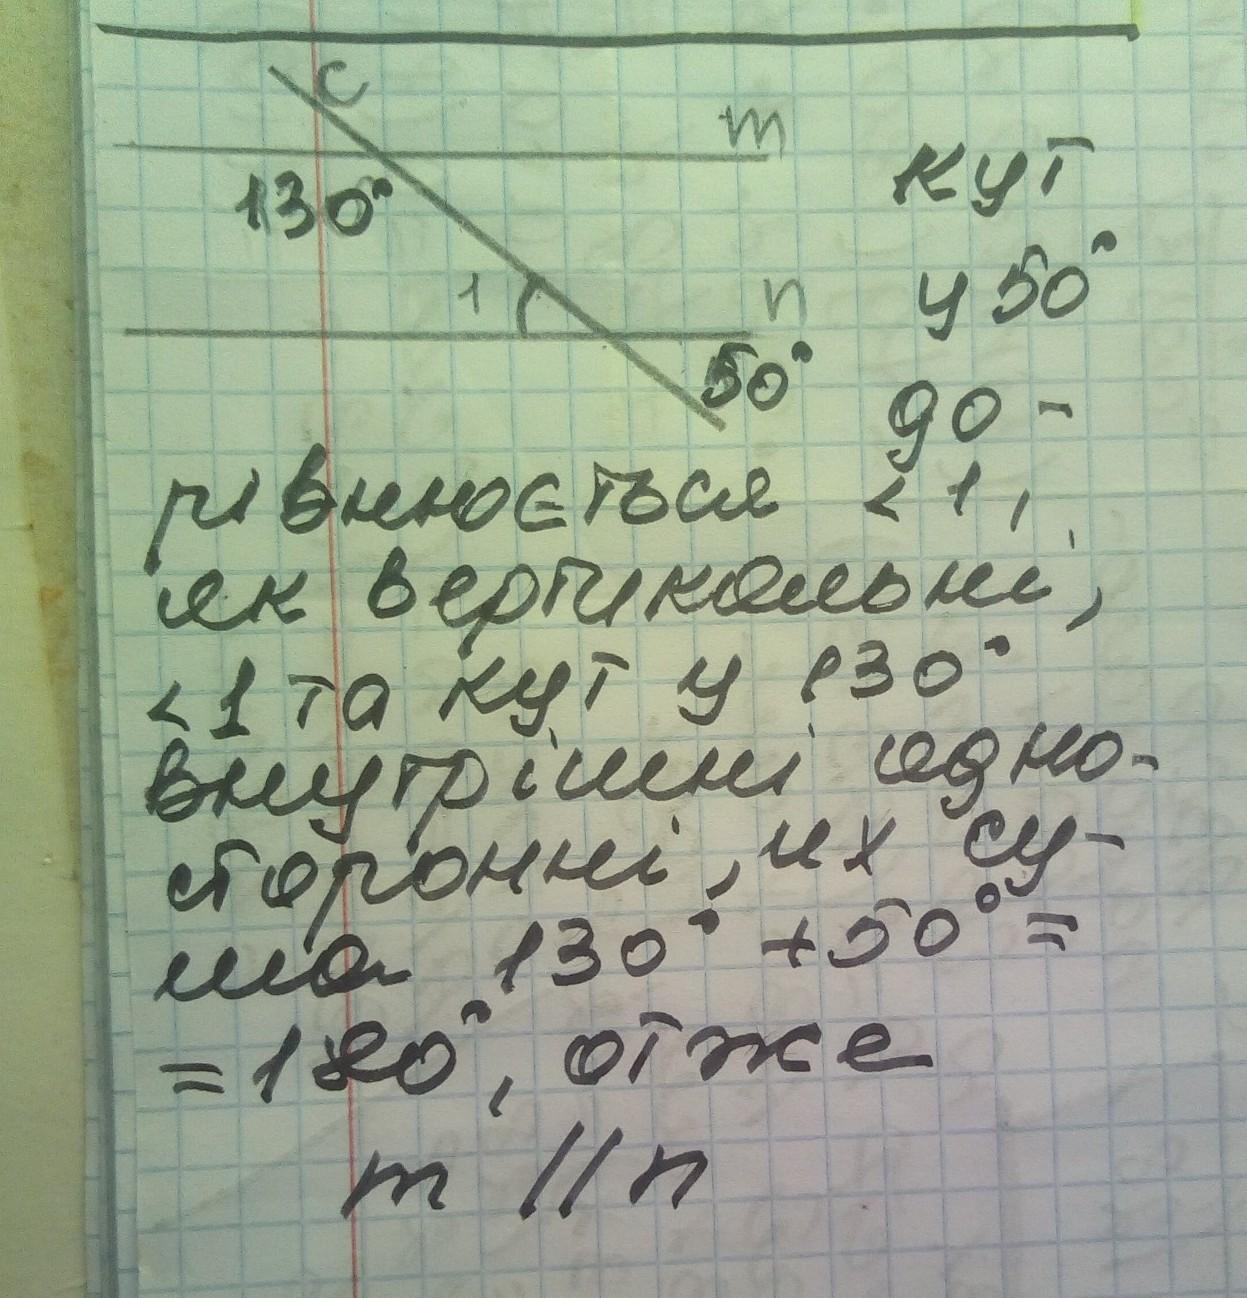 c
m
130°
1
n
50°
кут
у 50°
до -
рівнюється <1,
як вертикальні,
<1 та кут у 130°
внутрішні одно-
сторонні, їх су-
ма 130° + 50° =
= 180°, отже
m // n